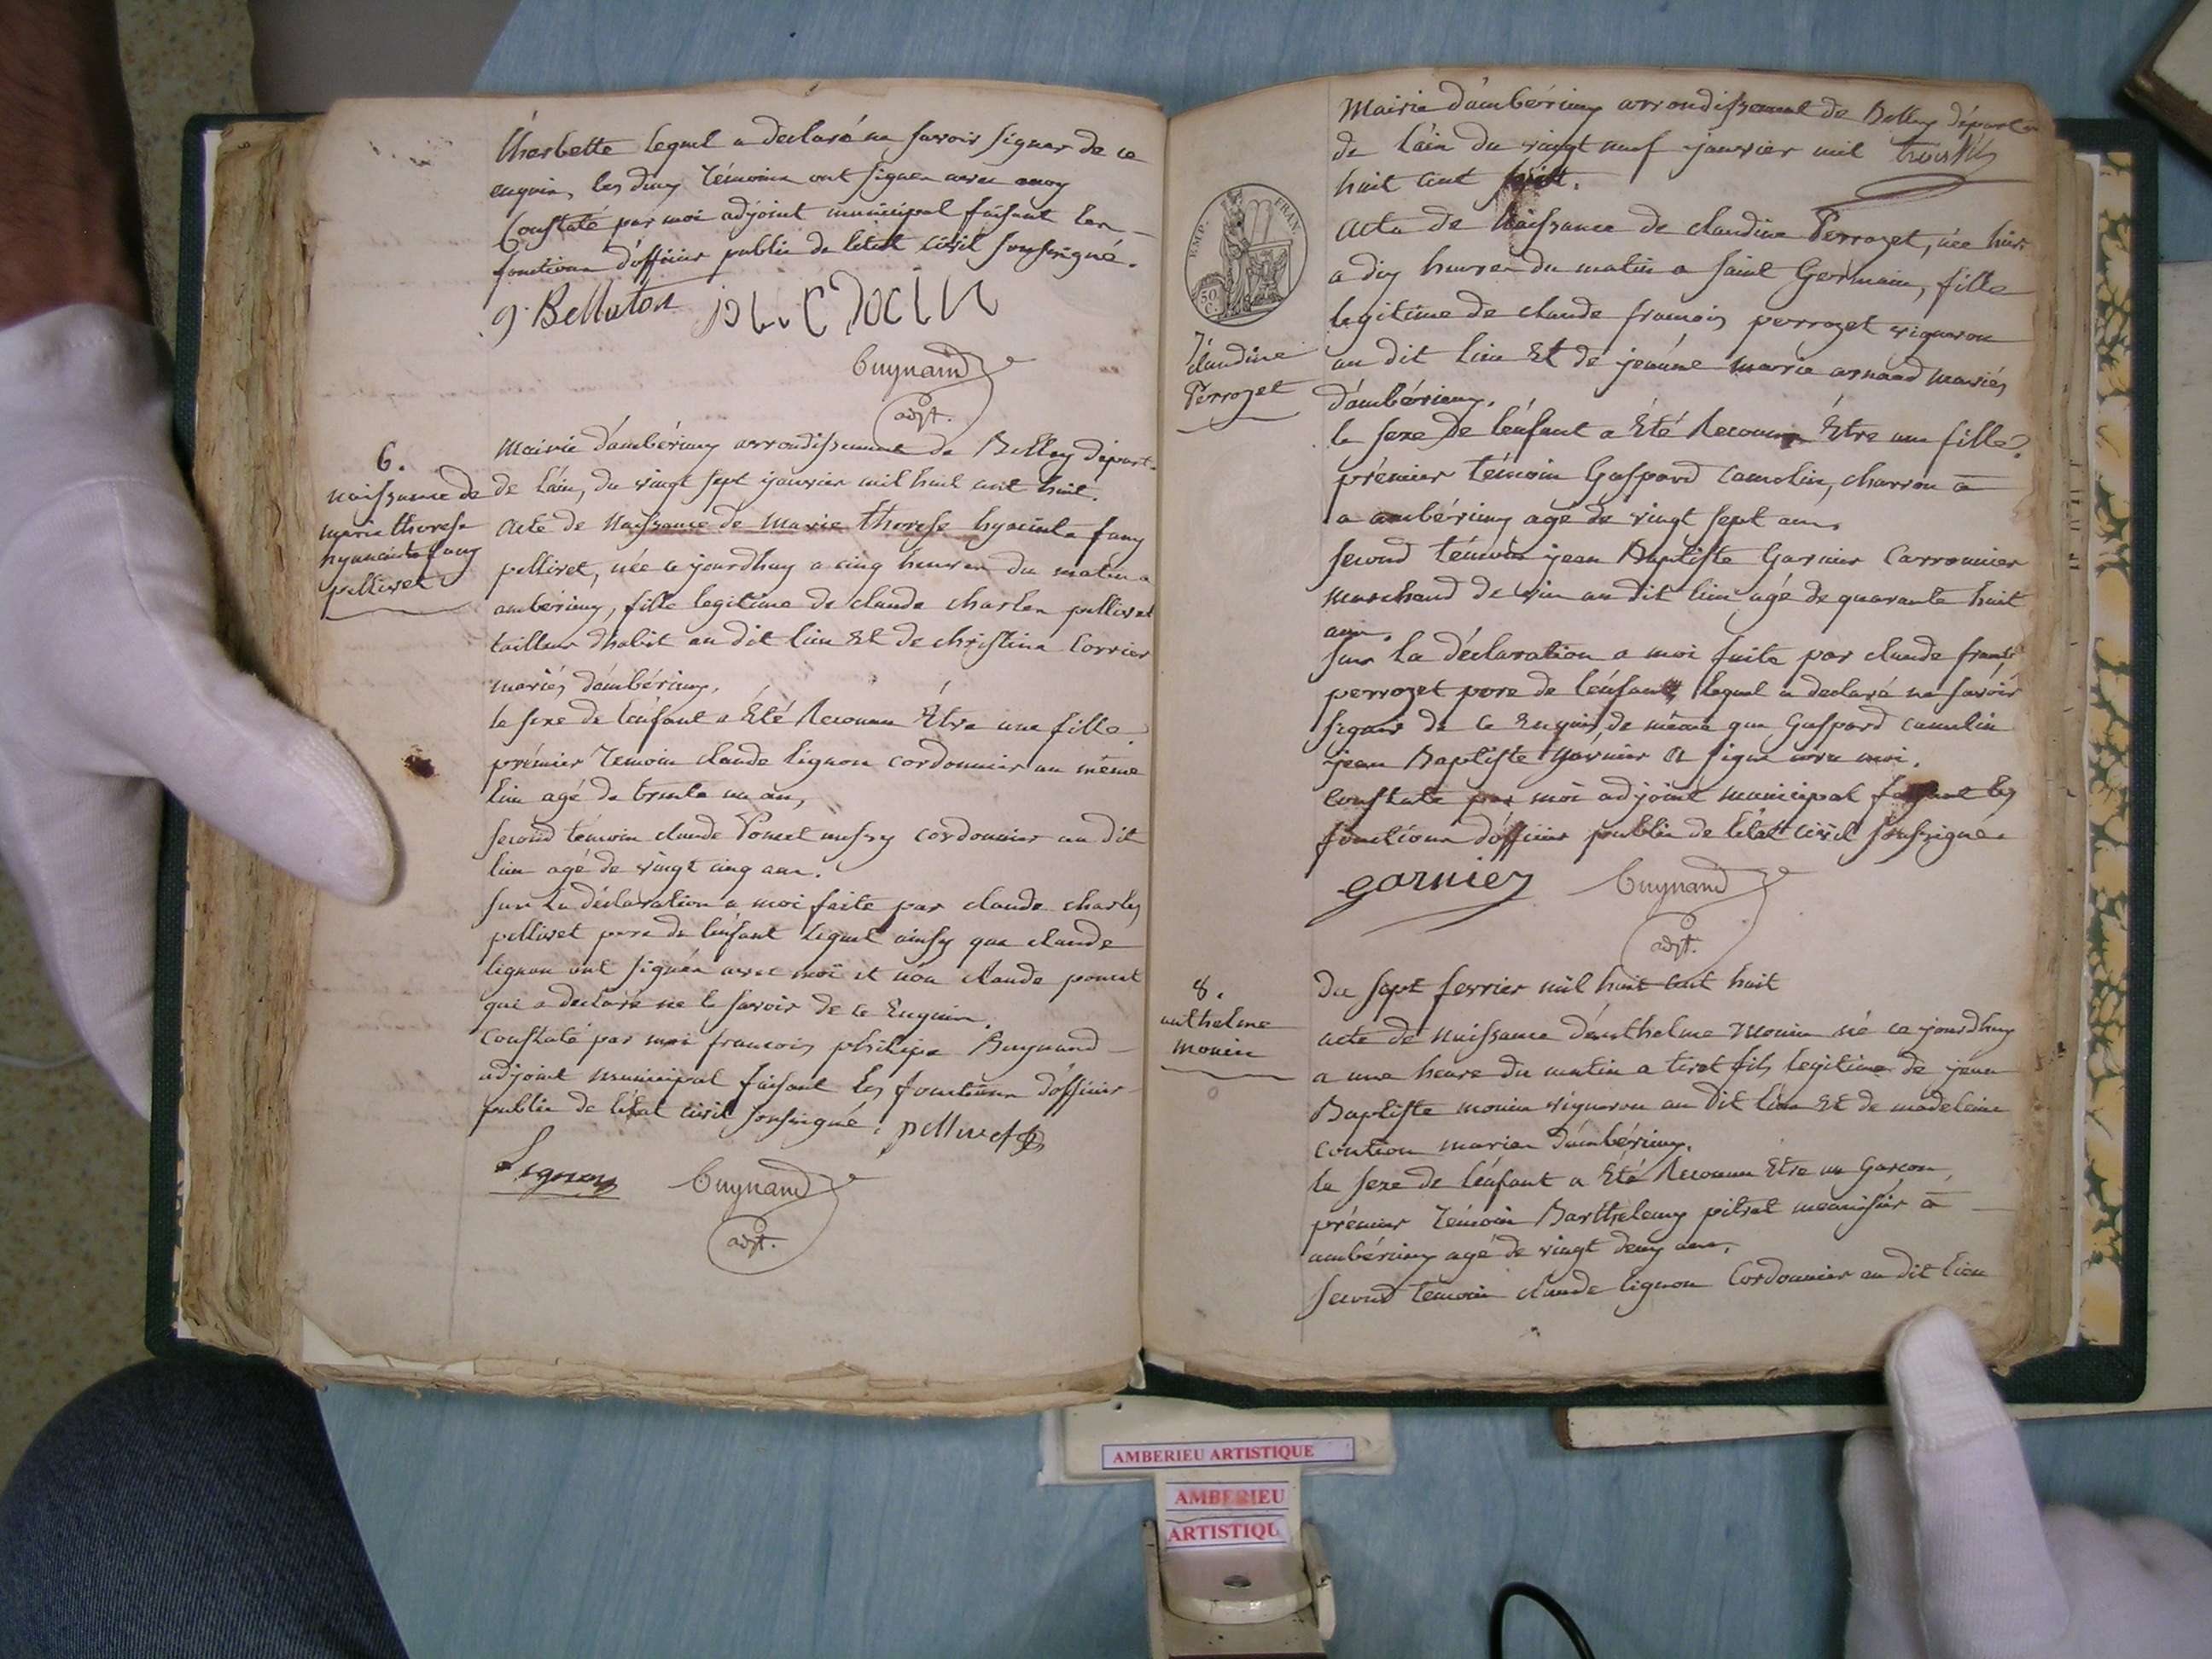 Charbette lequel a declaré ne savoir signer de ce
enquis, les deux témoins ont signés avec moy
Constaté par moi adjoint municipal faisant les
fonctions d'officier public de letat civil soussigné.
Buynand
adjt.
6.
naissance de
marie therese
hyacinte fany
pellivet
Mairie d'ambérieux arrondissement de Belley départ.
de l'ain, du vingt sept janvier mil huit cent huit.
acte de Naissance de marie therese hyacinte fany
pellivet, née ce jourdhuy a cinq heures du matin a
ambérieux, fille legitime de claude charles pellivet
tailleur d'habit au dit lieu Et de christine Corrier
mariés d'ambérieux.
le sexe de l'enfant a Eté Reconnu Etre une fille.
prémier Temoin claude lignon cordonnier au même
lieu agé de trente un ans,
second témoin claude Poncet cordonnier au dit
lieu agé de vingt cinq ans.
sur la déclaration a moi faite par claude charles
pellivet pere de l'enfant lequel ainsy que claude
lignon ont signés avec moi et non claude poncet
qui a declaré ne le savoir de ce Enquis.
Constaté par moi francois philipe Buynand
adjoint municipal faisant les fonctions d'officier
public de l'état civil soussigné. pellivet
Lignon Buynand
adjt.
EMP. FRAN.
50 C.
7.
claudine
Perrozet
Mairie d'ambérieux arrondissement de Belley départ
de l'ain du vingt neuf janvier mil
huit cent huit.
acte de Naissance de claudine Perrozet, née hier
a dix heures du matin a saint Germain, fille
legitime de claude francois perrozet vigneron
au dit lieu Et de jeanne marie arnaud mariés
d'ambérieux.
le sexe de l'enfant a Eté Reconnu Etre une fille.
prémier témoin Gaspard camelin, charron a
a ambérieux agé de vingt sept ans.
second témoin jean Baptiste Garnier
marchand de vin au dit lieu agé de quarante huit
ans.
sur la déclaration a moi faite par claude francois
perrozet pere de l'enfant, lequel a declaré ne savoir
signer de ce Enquis, de même que Gaspard camelin
jean Baptiste garnier a signé avec moi.
Constaté par moi adjoint municipal faisant les
fonctions d'officier public de l'état civil soussigné.
garnier Buynand
adjt.
8.
anthelme
monin
du sept fevrier mil huit cent huit
acte de naissance d'anthelme monin né ce jourdhuy
a une heure du matin a tiret fils legitime de jean
Baptiste monin vigneron au dit lieu Et de madeleine
mariés d'ambérieux.
le sexe de l'enfant a Eté Reconnu Etre un Garcon.
prémier Témoin Barthelemy pitrat menuisier a
ambérieux agé de vingt deux ans.
second temoin claude lignon Cordonnier au dit lieu
AMBERIEU ARTISTIQUE
AMBERIEU
ARTISTIQU